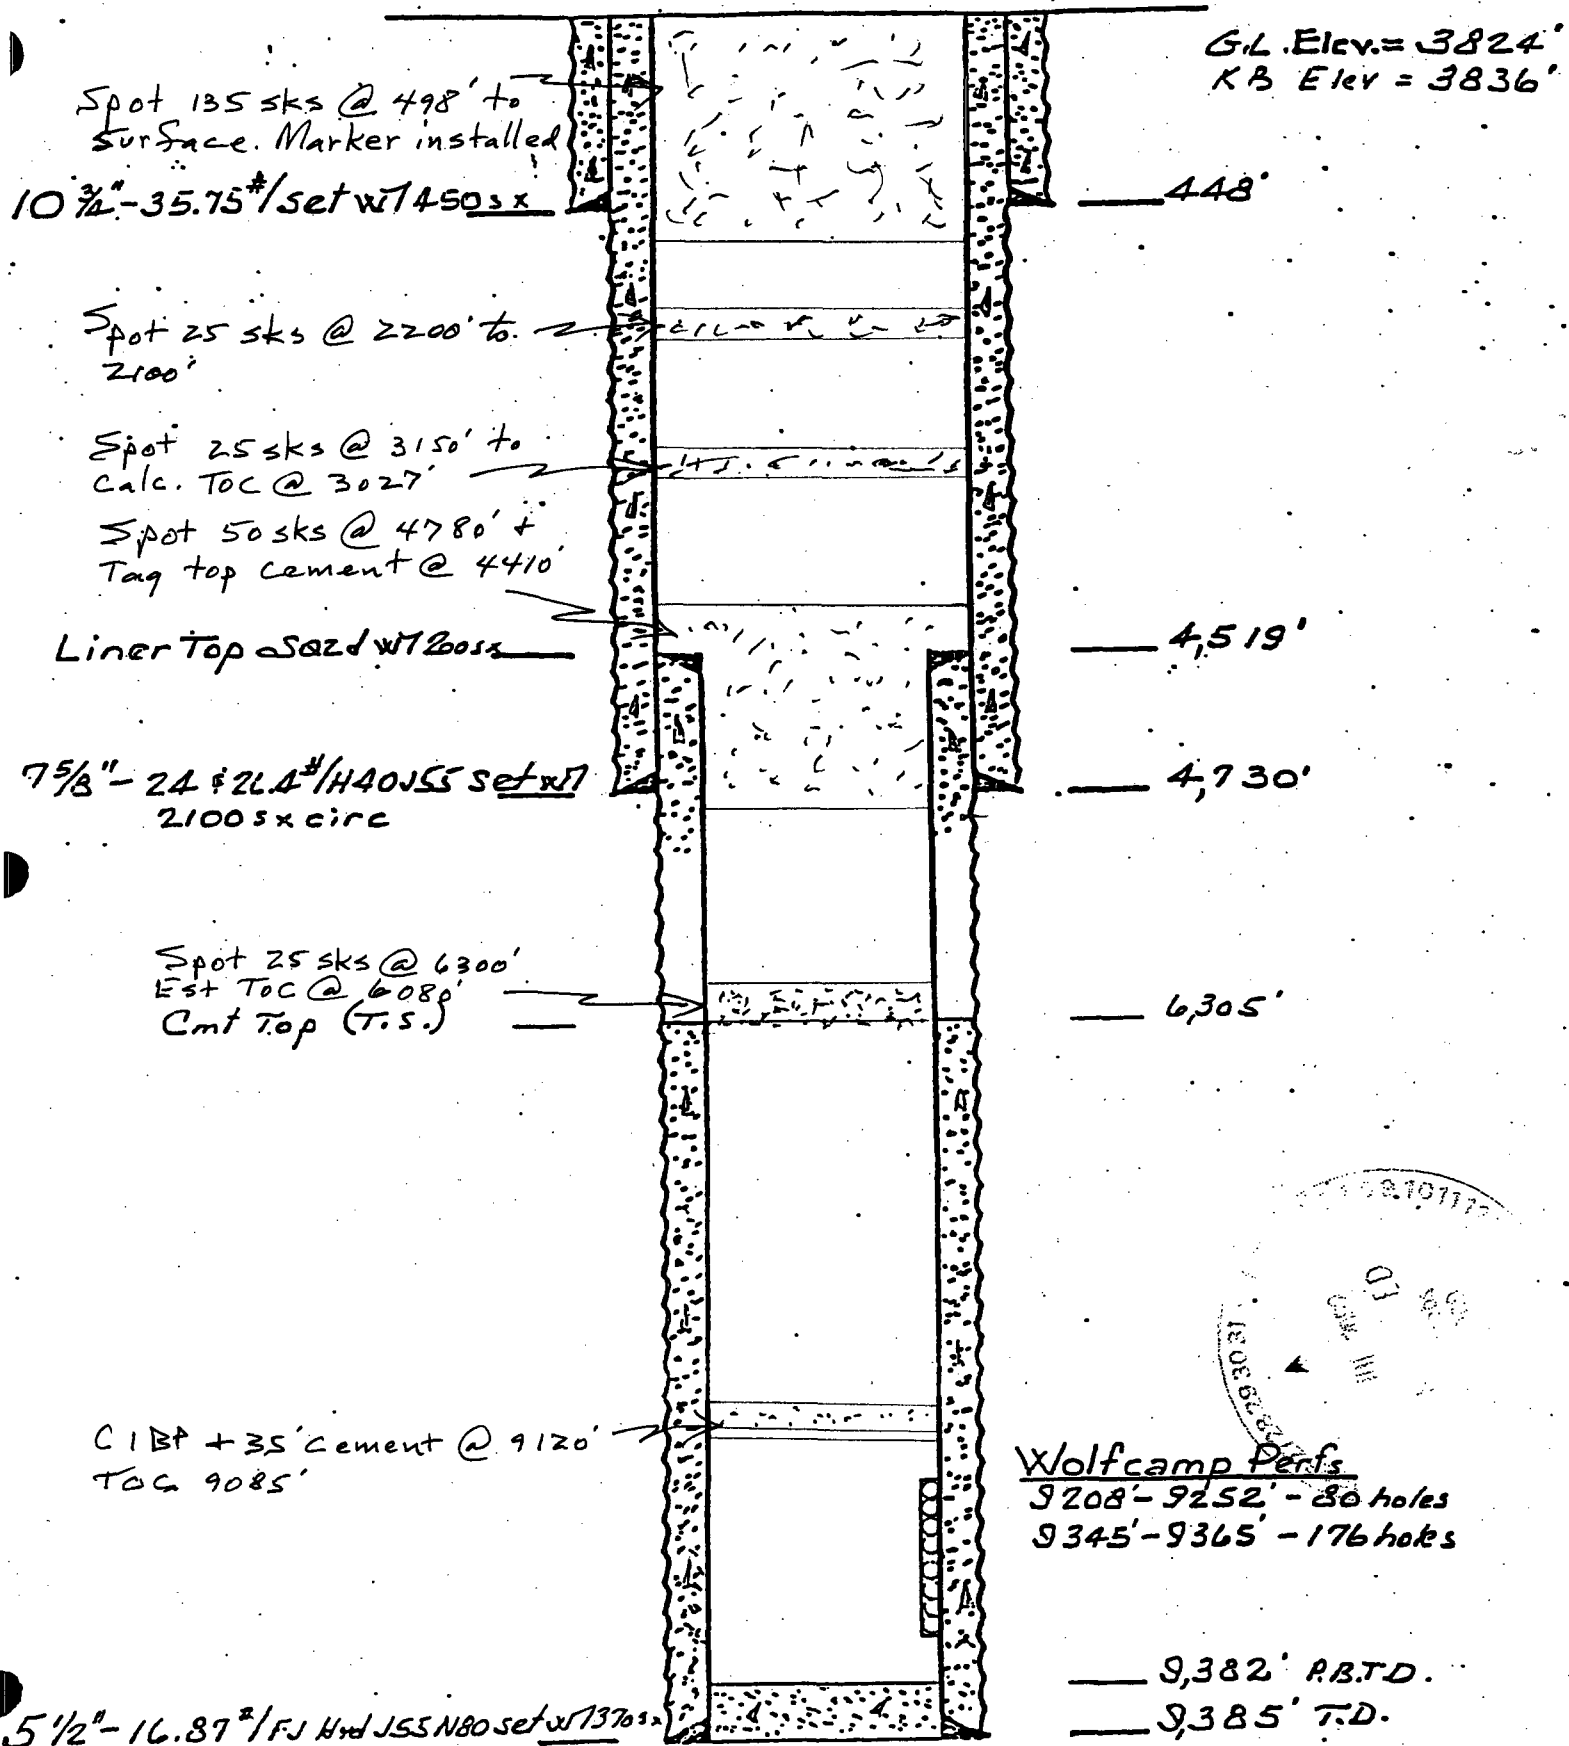 G.L. Elev. = 3824'
KB Elev = 3836'
Spot 135 sks @ 498' to
Surface. Marker installed
10 3/4" - 35.75#/set w/450sx
448'
Spot 25 sks @ 2200' to
2100'
Spot 25 sks @ 3150' to
Calc. TOC @ 3027'
Spot 50 sks @ 4780' +
Tag top cement @ 4410'
Liner Top Sqzd w/200sx
4,519'
7 5/8" - 24 & 26.4#/H40J55 set w/
2100sx circ
4,730'
Spot 25 sks @ 6300'
Est TOC @ 6080'
Cmt Top (T.S.)
6,305'
CIBP + 35' Cement @ 9120'
TOC 9085'
Wolfcamp Perfs
9208' - 9252' - 80 holes
9345' - 9365' - 176 holes
9,382' P.B.T.D.
9,385' T.D.
5 1/2" - 16.87#/FJ Hyd J55 N80 set w/1370sx